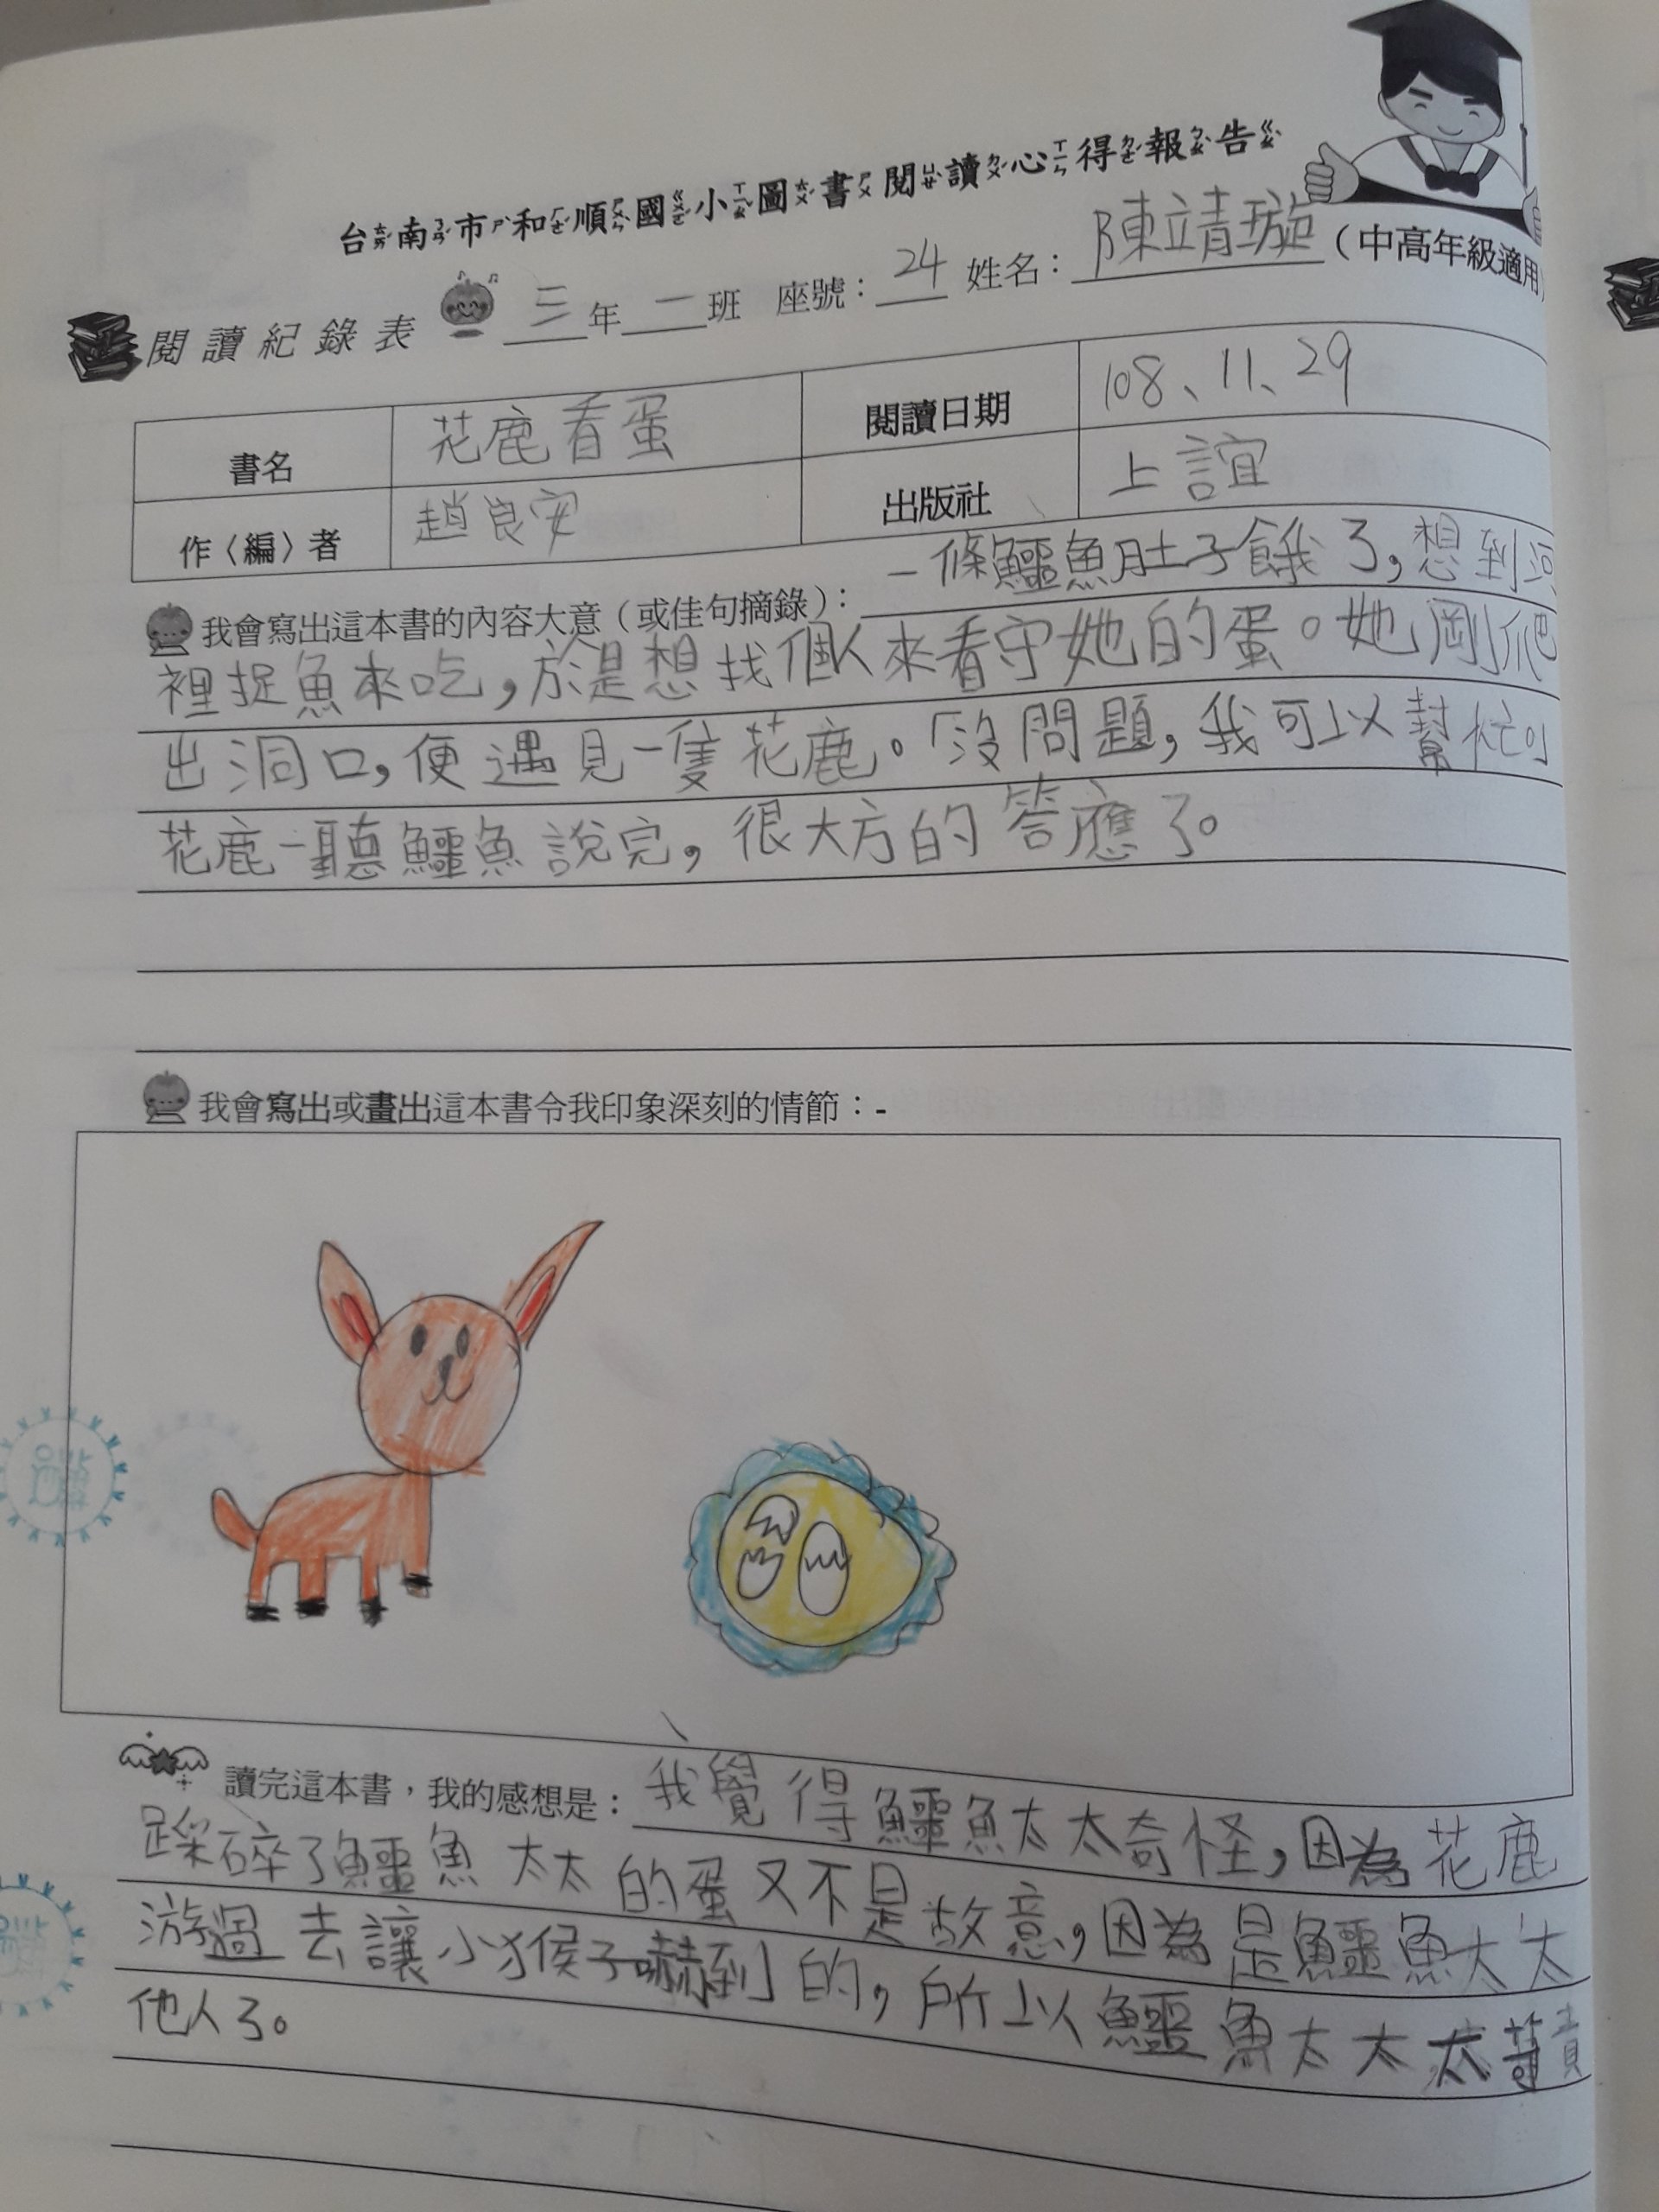 台南市和順國小圖書閱讀心得報告
閱讀紀錄表 三年一班 座號：24 姓名：陳靖璇（中高年級適用）
書名 花鹿看蛋 閱讀日期 108、11、29
作〈編〉者 趙良安 出版社 上誼
我會寫出這本書的內容大意（或佳句摘錄）：一條鱷魚肚子餓了，想到河
裡捉魚來吃，於是想找個人來看守她的蛋。她剛爬
出洞口，便遇見一隻花鹿。「沒問題，我可以幫忙。」
花鹿一聽鱷魚說完，很大方的答應了。
我會寫出或畫出這本書令我印象深刻的情節：-
讀完這本書，我的感想是：我覺得鱷魚太太奇怪，因為花鹿
踩碎了鱷魚太太的蛋又不是故意，因為是鱷魚太太
游過去讓小猴子嚇到的，所以鱷魚太太太苛責
他人了。